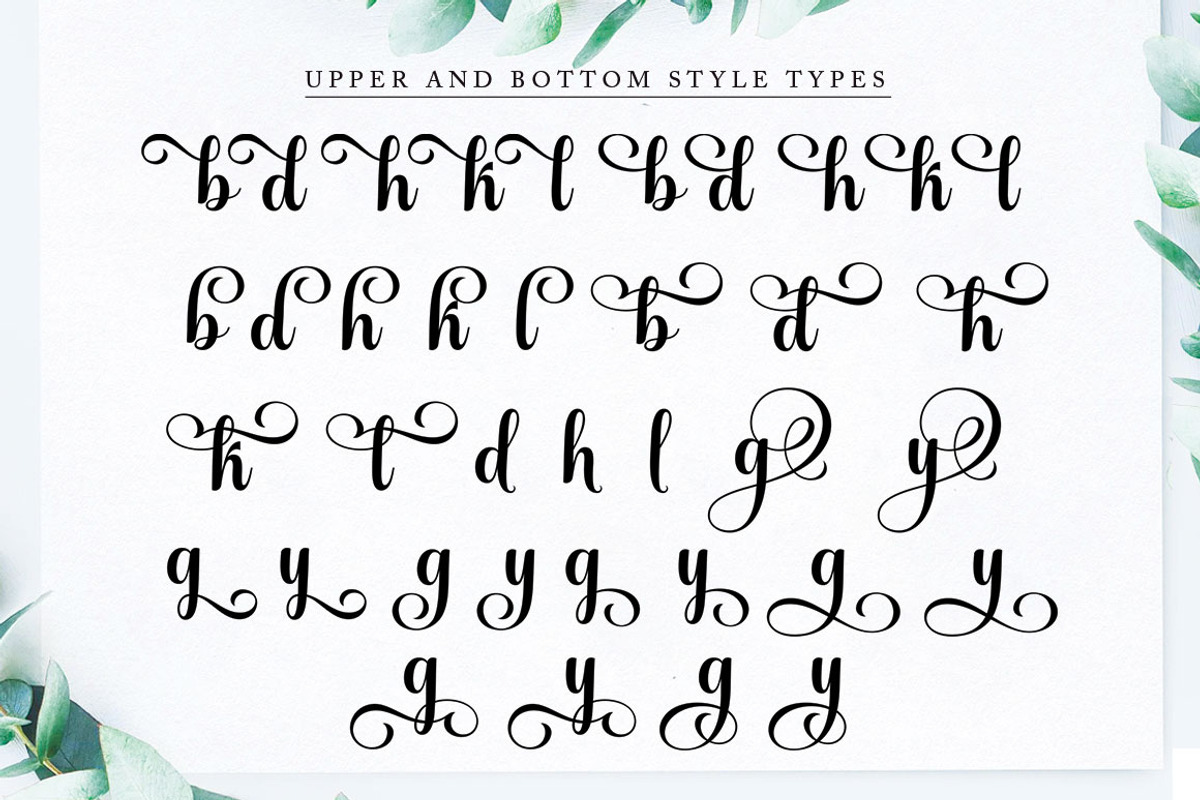 UPPER AND BOTTOM STYLE TYPES
b d h k l b d h k l
b d h k l b d h
k l d h l g y
g y g y g y g y
g y g y